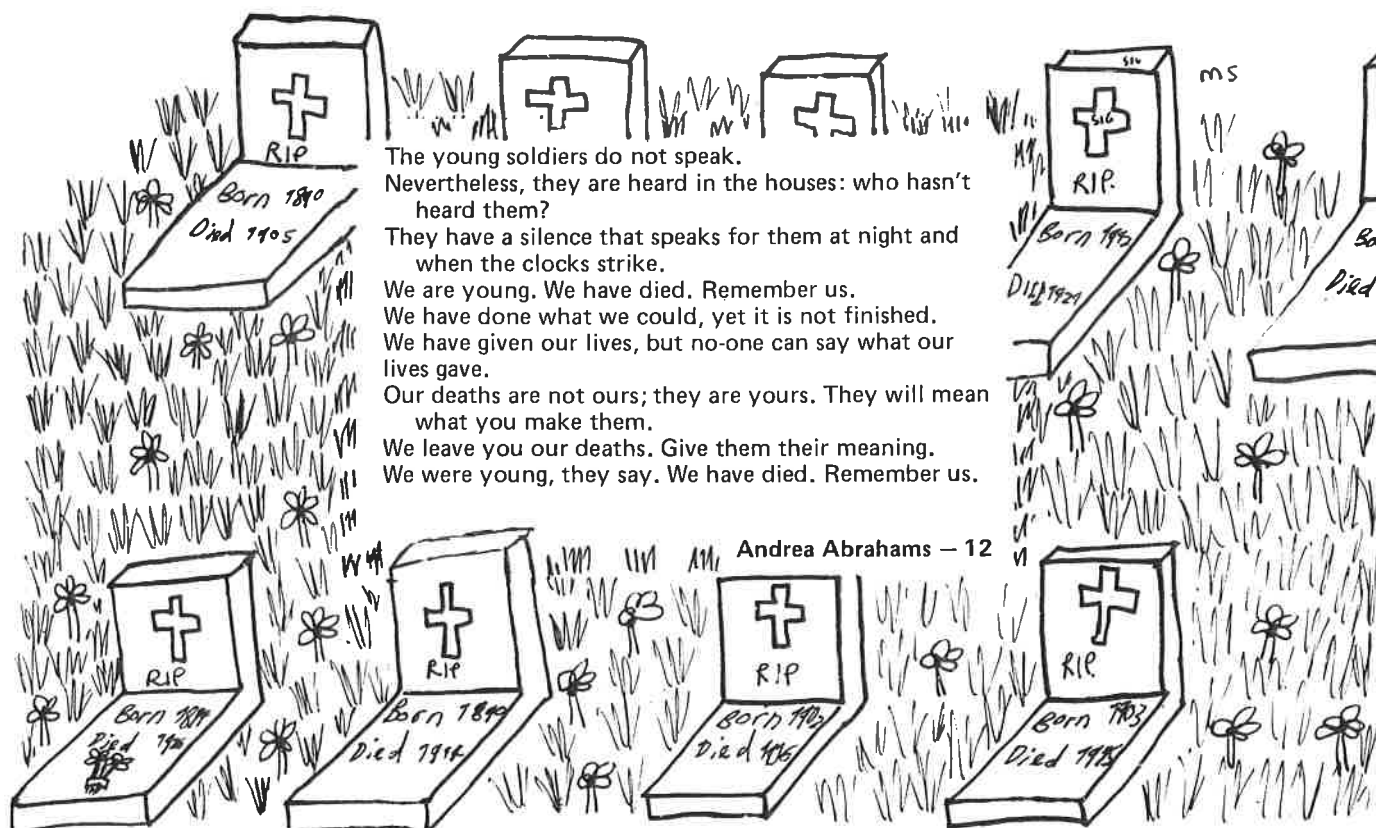 SIG
ms
SIG
RIP
RIP.
Born 1890
Died 1905
Born
Died
The young soldiers do not speak.
Nevertheless, they are heard in the houses: who hasn't
heard them?
They have a silence that speaks for them at night and
when the clocks strike.
We are young. We have died. Remember us.
We have done what we could, yet it is not finished.
We have given our lives, but no-one can say what our
lives gave.
Our deaths are not ours; they are yours. They will mean
what you make them.
We leave you our deaths. Give them their meaning.
We were young, they say. We have died. Remember us.
Andrea Abrahams — 12
RIP
RIP
RIP
RIP.
Born
Died
Born
Died
Born
Died
Born 1903
Died